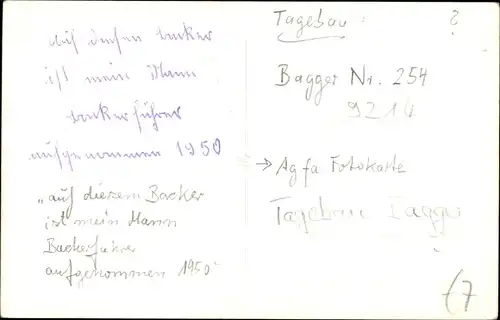 auf diesen backer
ist mein Mann
backerführer
aufgenommen 1950
„auf diezem Backer
ist mein Mann
Backerführer
aufgekommen 1950“
Tagebau: ?
Bagger Nr. 254
9214
→ Agfa Fotokarte
Tagebau Bagger
(7